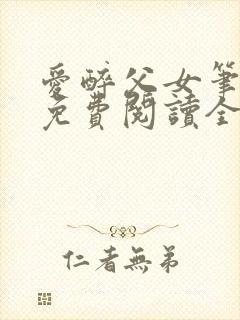 愛醉父女筆
免費閱讀全
仁者無弟